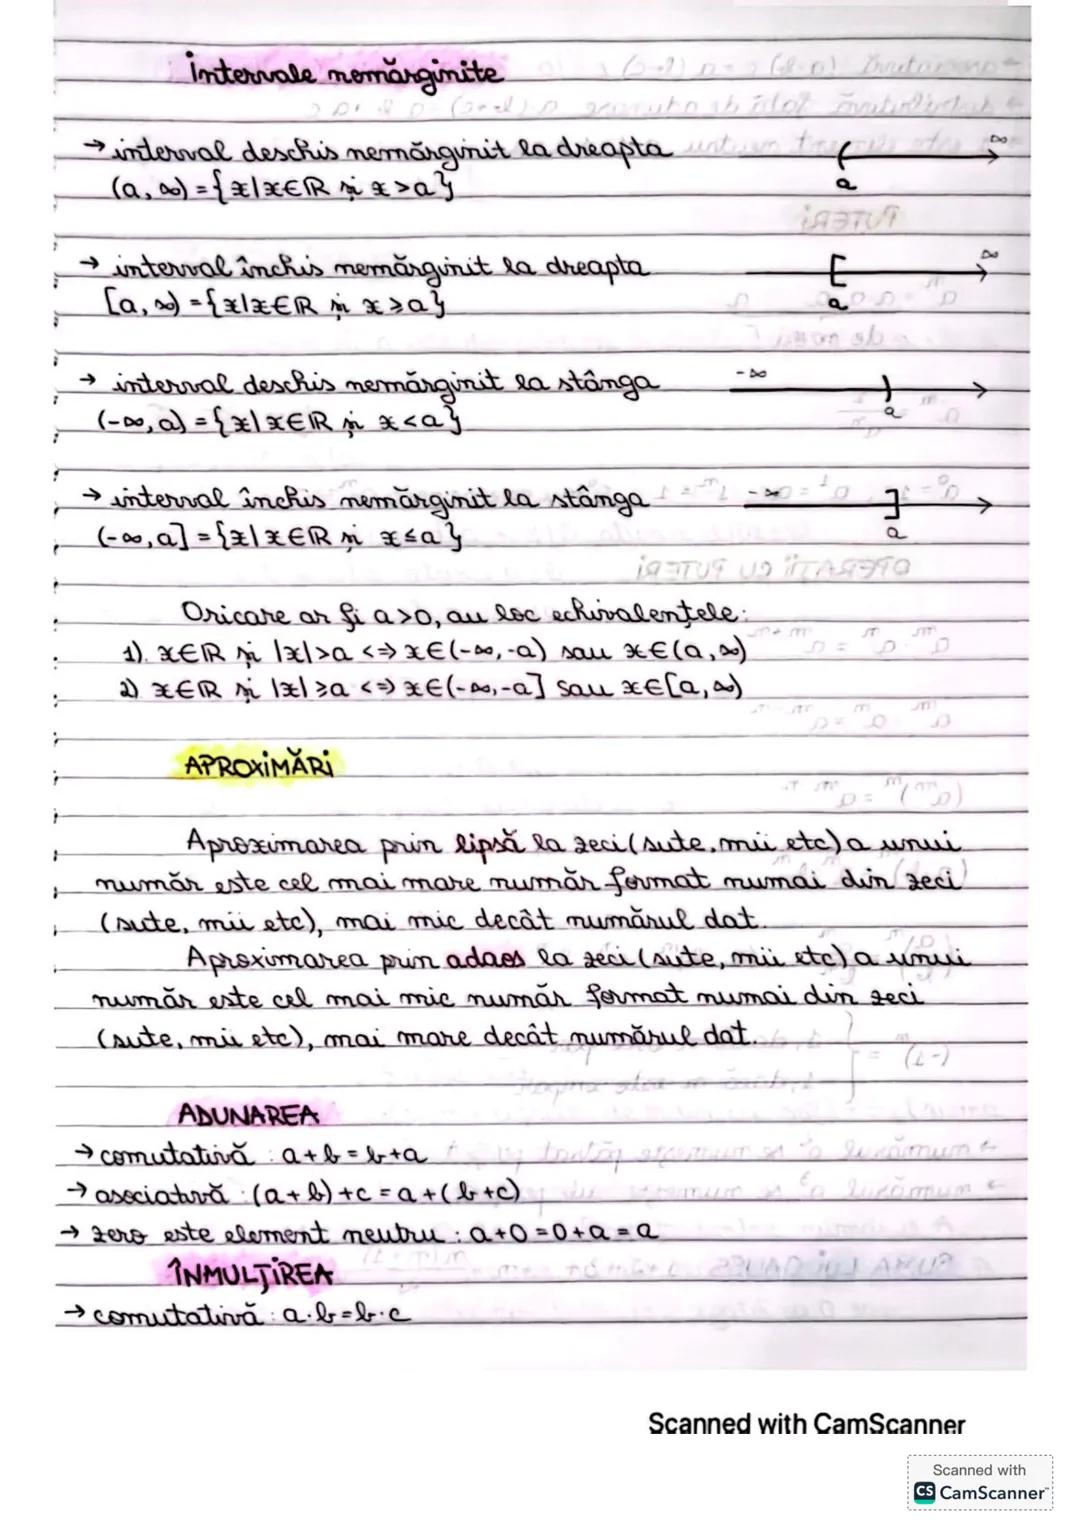 Intervale nemărginite
→ interval deschis nemărginit la dreapta
(a, ∞) = {x|x∈ℝ și x>a}
( a ∞
→ interval închis nemărginit la dreapta
[a, ∞) = {x|x∈ℝ și x≥a}
[ a ∞
→ interval deschis nemărginit la stânga
(-∞, a) = {x|x∈ℝ și x<a}
-∞ ) a
→ interval închis nemărginit la stânga
(-∞, a] = {x|x∈ℝ și x≤a}
-∞ ] a
Oricare ar fi a>0, au loc echivalențele:
1). x∈ℝ și |x|>a <=> x∈(-∞,-a) sau x∈(a,∞)
2) x∈ℝ și |x|≥a <=> x∈(-∞,-a] sau x∈[a,∞)
APROXIMĂRI
Aproximarea prin lipsă la zeci (sute, mii etc) a unui
număr este cel mai mare număr format numai din zeci
(sute, mii etc), mai mic decât numărul dat.
Aproximarea prin adaos la zeci (sute, mii etc) a unui
număr este cel mai mic număr format numai din zeci
(sute, mii etc), mai mare decât numărul dat.
ADUNAREA
→ comutativă : a+b=b+a
→ asociativă : (a+b)+c=a+(b+c)
→ zero este element neutru : a+0=0+a=a
ÎNMULȚIREA
→ comutativă : a·b=b·c
Scanned with CamScanner
Scanned with
CS CamScanner